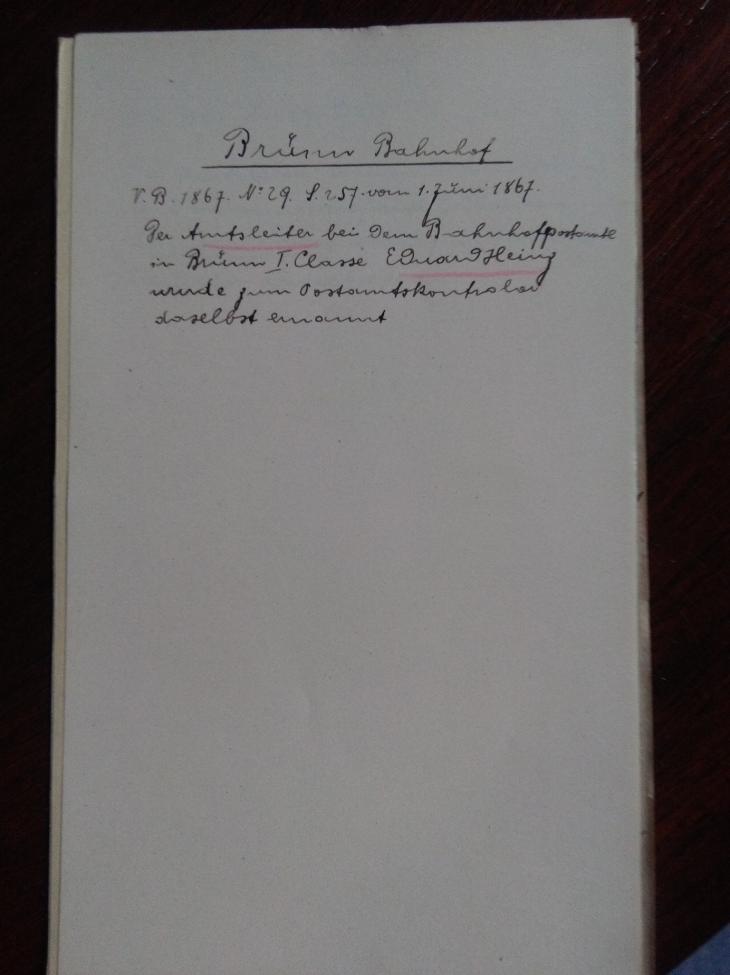 Brünn Bahnhof
V. B. 1867. Nº 29. S. 257. vom 1. Juni 1867.
Der Amtsleiter bei dem Bahnhofpostamte
in Brünn I. Classe Eduard Heinz
wurde zum Postamtskontrolor
daselbst ernannt